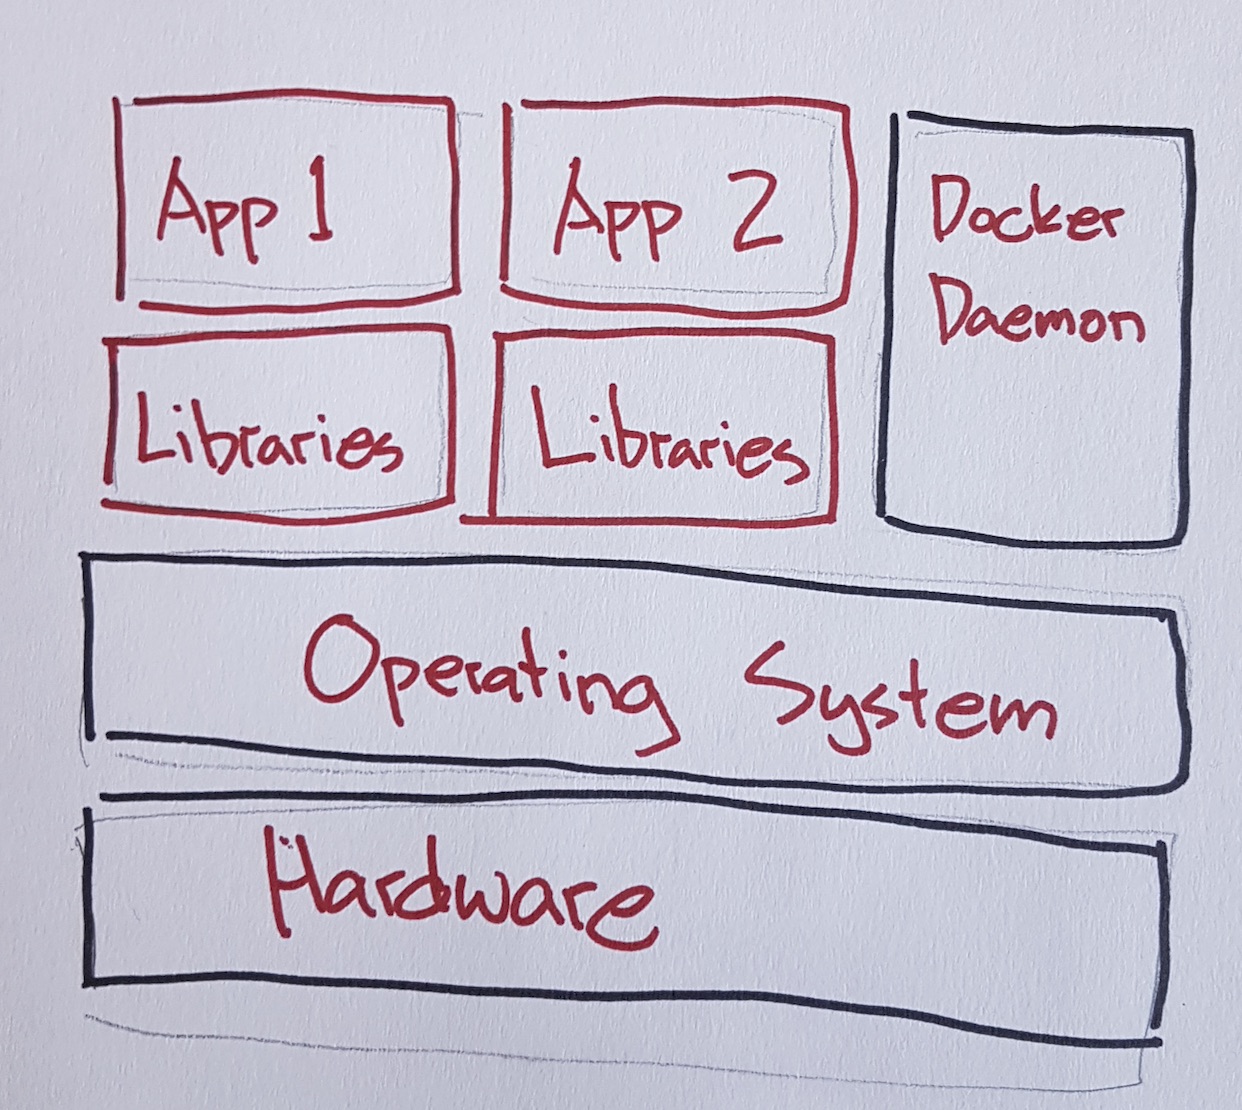 App 1
App 2
Docker
Daemon
Libraries
Libraries
Operating System
Hardware